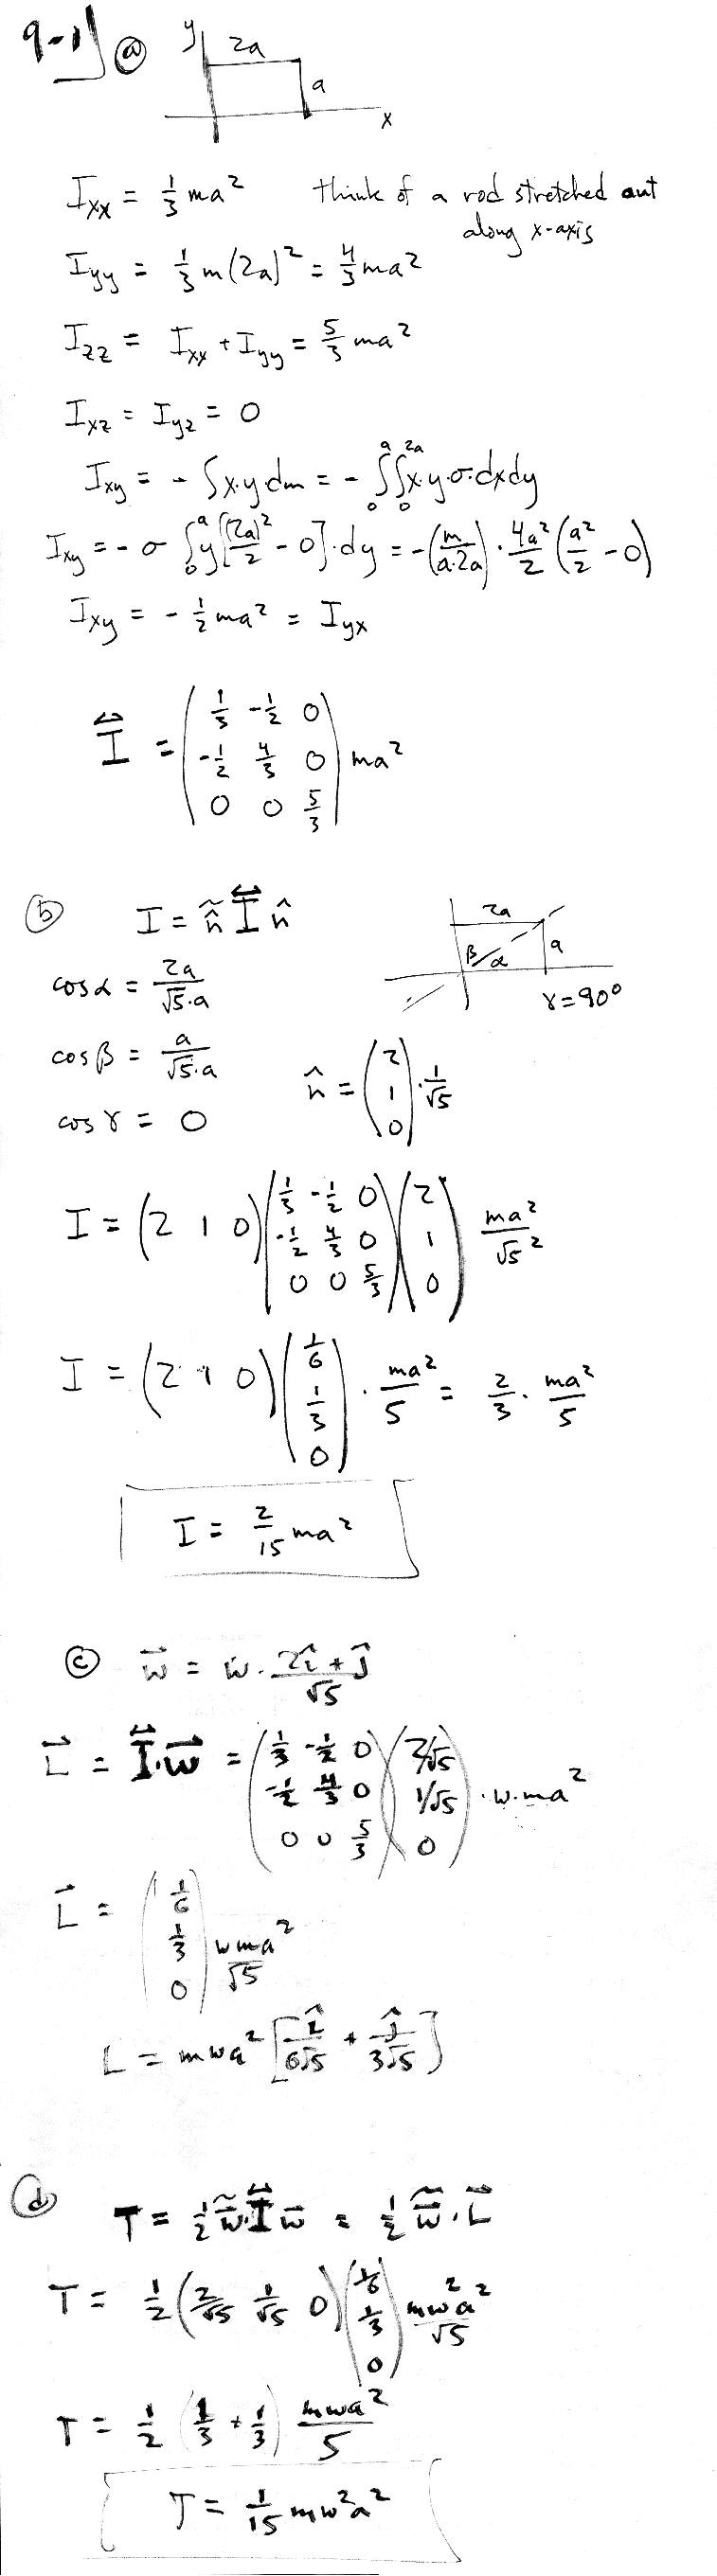 9-1) ⓐ y 2a
a
x
I_xx = 1/3 ma² think of a rod stretched out
along x-axis
I_yy = 1/3 m(2a)² = 4/3 ma²
I_zz = I_xx + I_yy = 5/3 ma²
I_xz = I_yz = 0
I_xy = - ∫x·y dm = - ∫₀^a ∫₀^2a x·y·σ·dxdy
I_xy = - σ ∫₀^a y[(2a)²/2 - 0]·dy = -(m/a·2a) · 4a²/2 (a²/2 - 0)
I_xy = - 1/2 ma² = I_yx
I⃡ = (1/3 -1/2 0
-1/2 4/3 0
0 0 5/3) ma²
ⓑ I = ñ I⃡ n̂ 2a
β α a
cos α = 2a/√5·a γ = 90°
cos β = a/√5·a n̂ = (2 1 0) · 1/√5
cos γ = 0
I = (2 1 0) (1/3 -1/2 0
-1/2 4/3 0
0 0 5/3) (2 1 0) ma²/√5²
I = (2 1 0) (1/6 1/3 0) · ma²/5 = 2/3 · ma²/5
I = 2/15 ma²
ⓒ w⃗ = w · 2î + ĵ/√5
L⃗ = I⃡·w⃗ = (1/3 -1/2 0
-1/2 4/3 0
0 0 5/3) (2/√5 1/√5 0) · w·ma²
L⃗ = (1/6 1/3 0) wma²/√5
L = mwa² [î/6√5 + ĵ/3√5]
ⓓ T = 1/2 w̃ I⃡ w⃗ = 1/2 w̃·L⃗
T = 1/2 (2/√5 1/√5 0) (1/6 1/3 0) mw²a²/√5
T = 1/2 (1/3 + 1/3) mwa²/5
T = 1/15 mw²a²